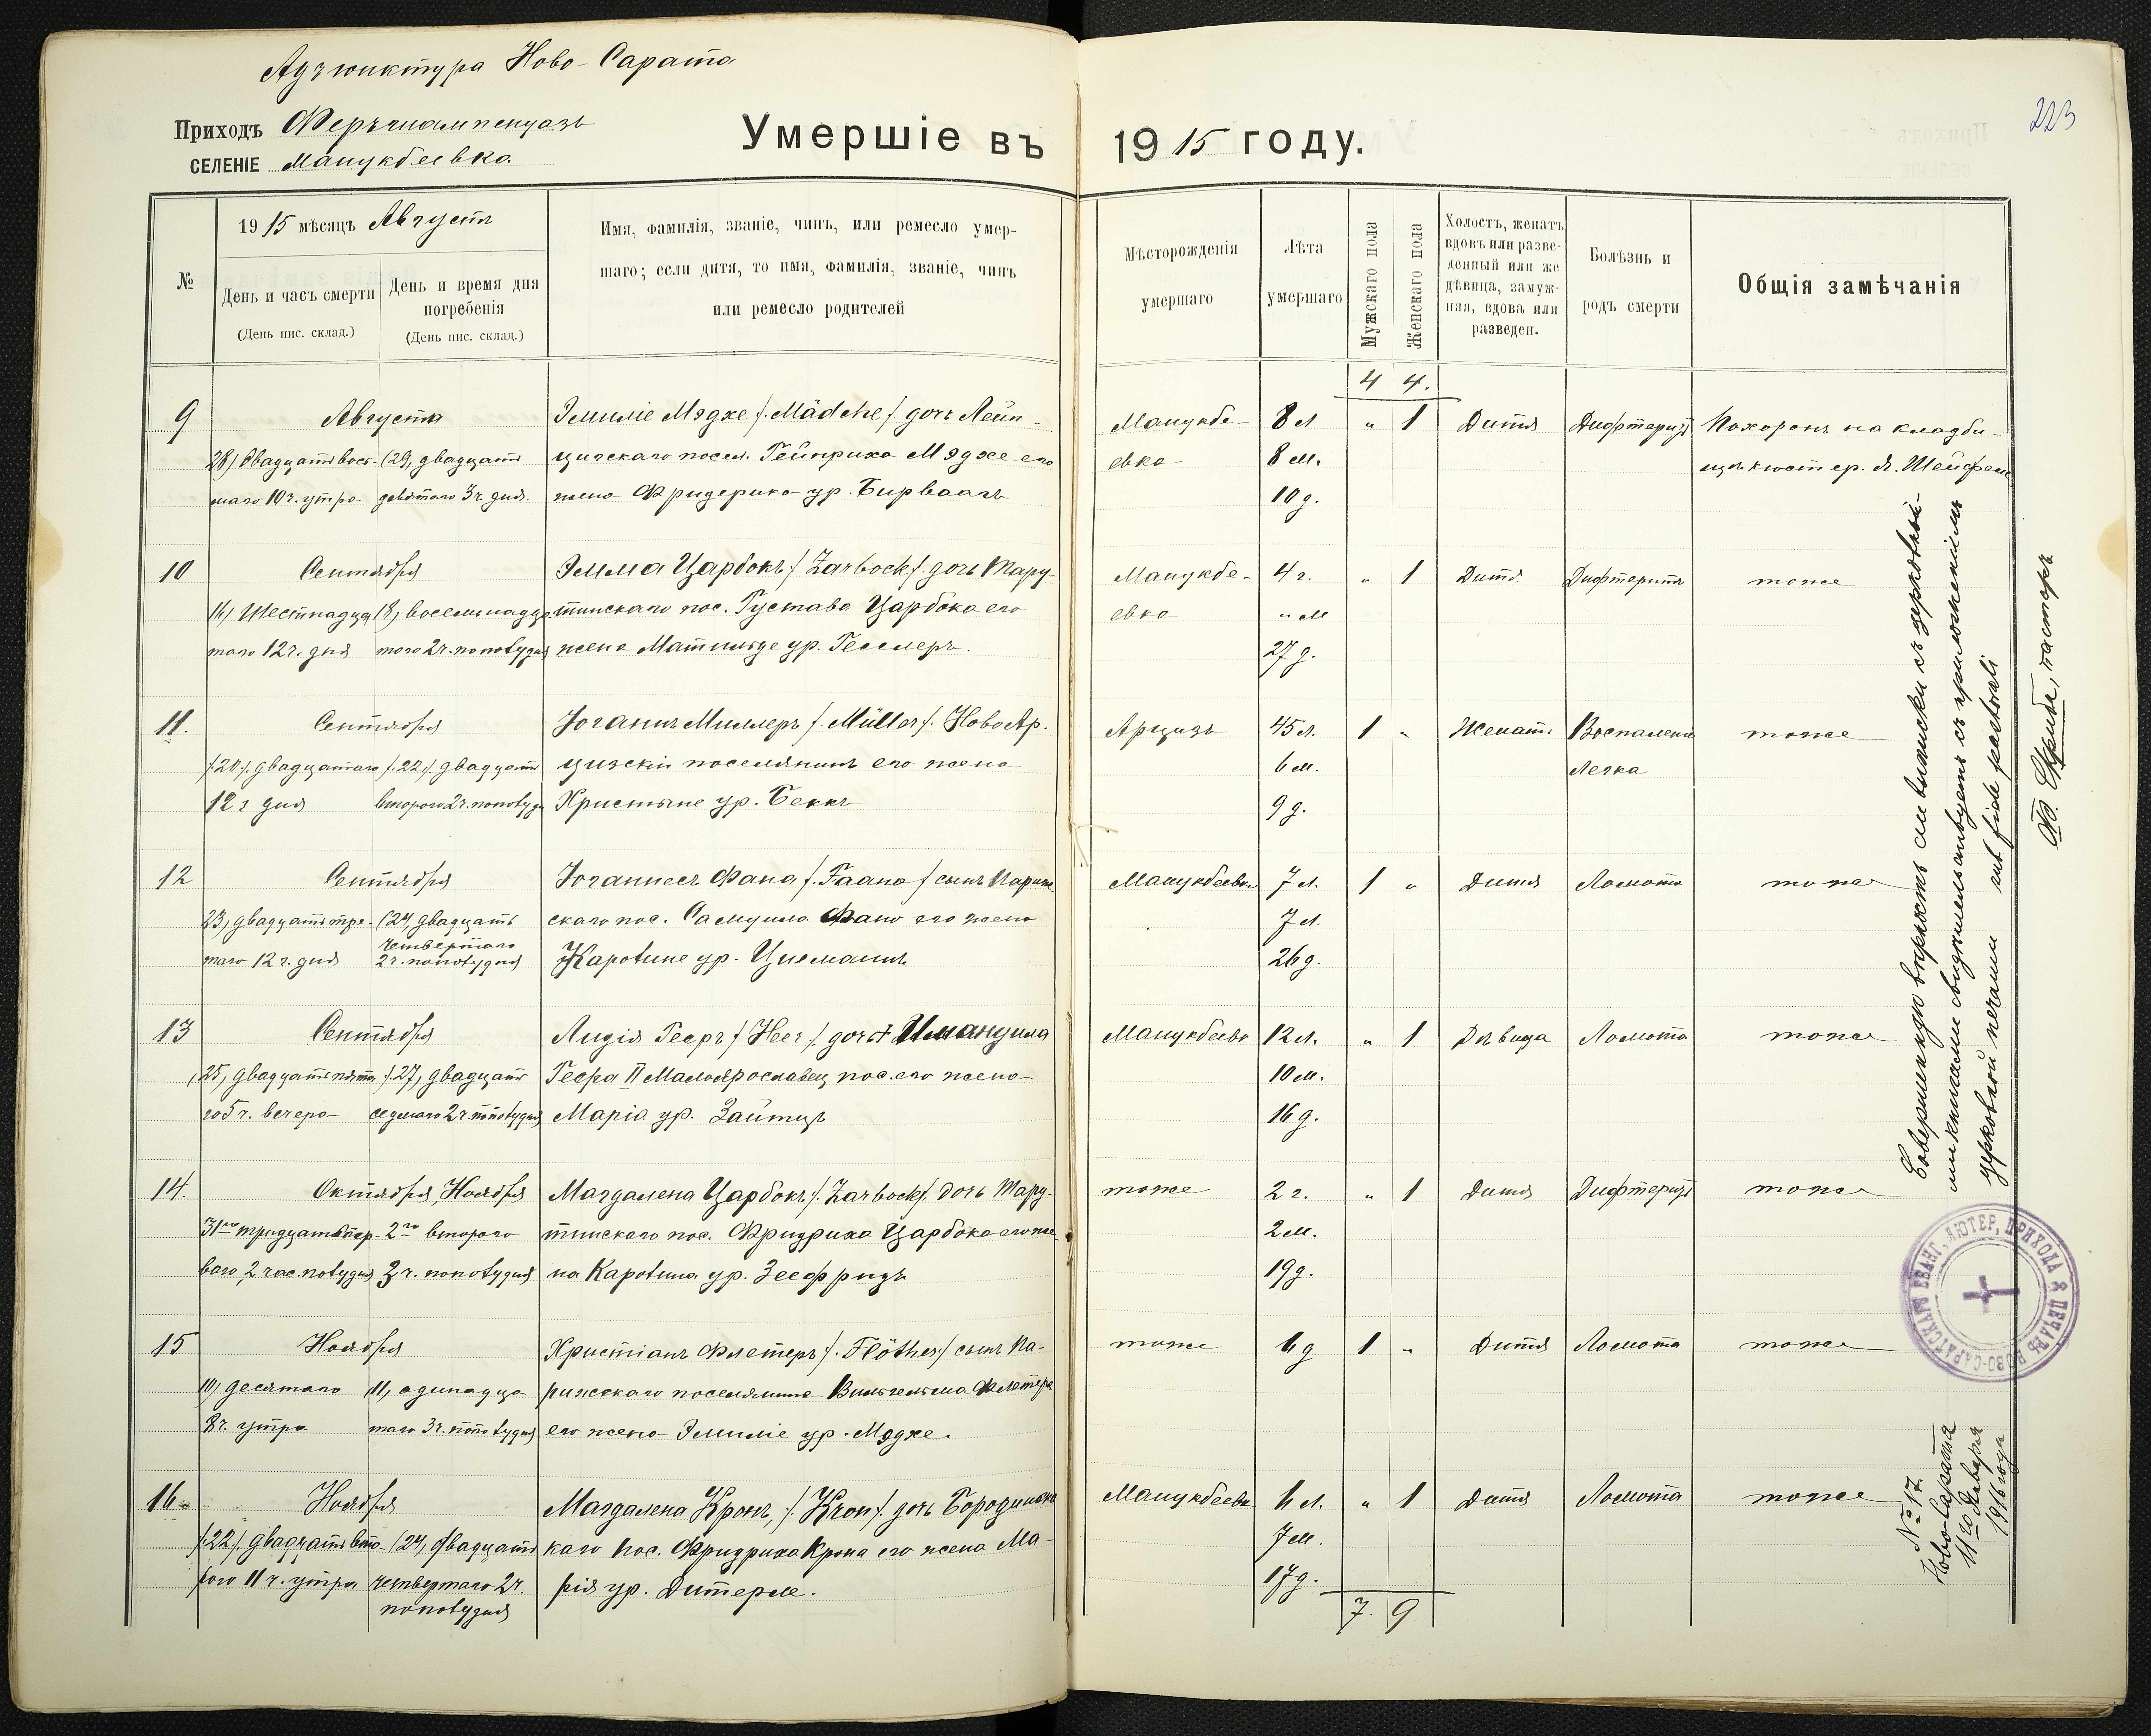 Адъюнктура Ново-Сарата
Приходъ Фершампенуазъ
СЕЛЕНІЕ Манукбеевка
Умершіе въ 1915 году.
223
№
1915 мѣсяцъ Августъ
День и часъ смерти
(День пис. склад.)
День и время дня
погребенія
(День пис. склад.)
Имя, фамилія, званіе, чинъ, или ремесло умер-
шаго; если дитя, то имя, фамилія, званіе, чинъ
или ремесло родителей
Мѣсторожденія
умершаго
Лѣта
умершаго
Мужскаго пола
Женскаго пола
Холостъ, женатъ
вдовъ или разве-
денный или же
дѣвица, замуж-
няя, вдова или
разведен.
Болѣзнь и
родъ смерти
Общія замѣчанія
4 4.
9
Августа
28) двадцать вось-
маго 10 ч. утра
(29) двадцать
девятаго 3 ч. дня.
Эмиліе Мэдхе /. Mädche / дочь Лейп-
цигскаго посел. Гейнриха Мэдхе его
жена Фридерика ур. Бирваагъ
Манукбе-
евка
8 л
8 м.
10 д.
" 1
Дитя
Дифтеритъ
Похорон. на кладби-
щѣ кюстер. Я. Шейфеле
10
Сентября
16) Шестнадца
таго 12 ч. дня
18) восемнадца
таго 2 ч. пополудня
Эмма Царбокъ / Zarbock /. дочь Тару-
тинскаго пос. Густава Царбока его
жена Матильде ур. Гесслеръ.
Манукбе-
евка
4 г.
" м
27 д.
" 1
Дитя
Дифтеритъ
тоже
11.
Сентября
/.20./. двадцатаго
12 ч дня
/.22./. двадцать
второго 2 ч. пополудн
Іоганнъ Миллеръ /. Müller /. Ново Ар-
цизскій поселянинъ его жена
Христине ур. Беккъ
Арцизъ
45 л.
6 м.
9 д.
1 "
Женатъ
Воспаленіе
Легка
тоже
12
Сентября
23) двадцать тре-
таго 12 ч. дня
(24) двадцать
четвертаго
2 ч. пополудня
Іоганнесъ Фана /. Faana / сынъ Париж-
скаго пос. Самуила Фана его жена
Каролине ур. Цисманъ
Манукбеевка
7 л.
7 м.
26 д.
1 "
Дитя
Ломота
тоже
13
Сентября
25) двадцать пята
го 5 ч. вечера
/.27) двадцать
седьмаго 2 ч. пополудня
Лидія Гееръ / Heer /. дочь Имануила
Геера II Малоярославец пос. его жена
Марія ур. Зайтцъ
Манукбеевка
12 л.
10 м.
16 д.
" 1
Дѣвица
Ломота
тоже
14.
Октября, Ноября
31го тридцать пер-
ваго 2 час. полудня
2го второго
3 ч. пополудня
Магдалена Царбокъ /. Zarbock /. дочь Тару-
тинскаго пос. Фридриха Царбока его же
на Каролина ур. Зеефридъ
тоже
2 г.
2 м.
19 д.
" 1
Дитя
Дифтеритъ
тоже
15
Ноября
10) десятаго
8 ч. утра
11) одинадца
таго 3 ч. пополудня
Христіанъ Флетеръ /. Flöther / сынъ Па-
рижскаго поселянина Вильгельма Флетера
его жена Эмиліе ур. Мэдхе.
тоже
6 д
1 "
Дитя
Ломота
тоже
16
Ноября
/.22/. двадцать вто-
рого 11 ч. утра
(24) двадцать
четвертаго 2 ч.
пополудня
Магдалена Кронъ, /. Kron /. дочь Бородинска
каго пос. Фридриха Крона его жена Ма-
рія ур. Дитерле.
Манукбеевка
6 л.
7 м.
17 д.
" 1
Дитя
Ломота
тоже
7. 9
Совершенную вѣрность сей выписки съ церковны-
ми книгами свидѣтельствуетъ съ приложеніемъ
церковной печати sub fide pastorali
пасторъ
ПЕЧАТЬ НОВО-САРАТСКАГО ЕВАНГ. ЛЮТЕР. ПРИХОДА
№ 17.
Ново-Сарата
11го Января
1916 года